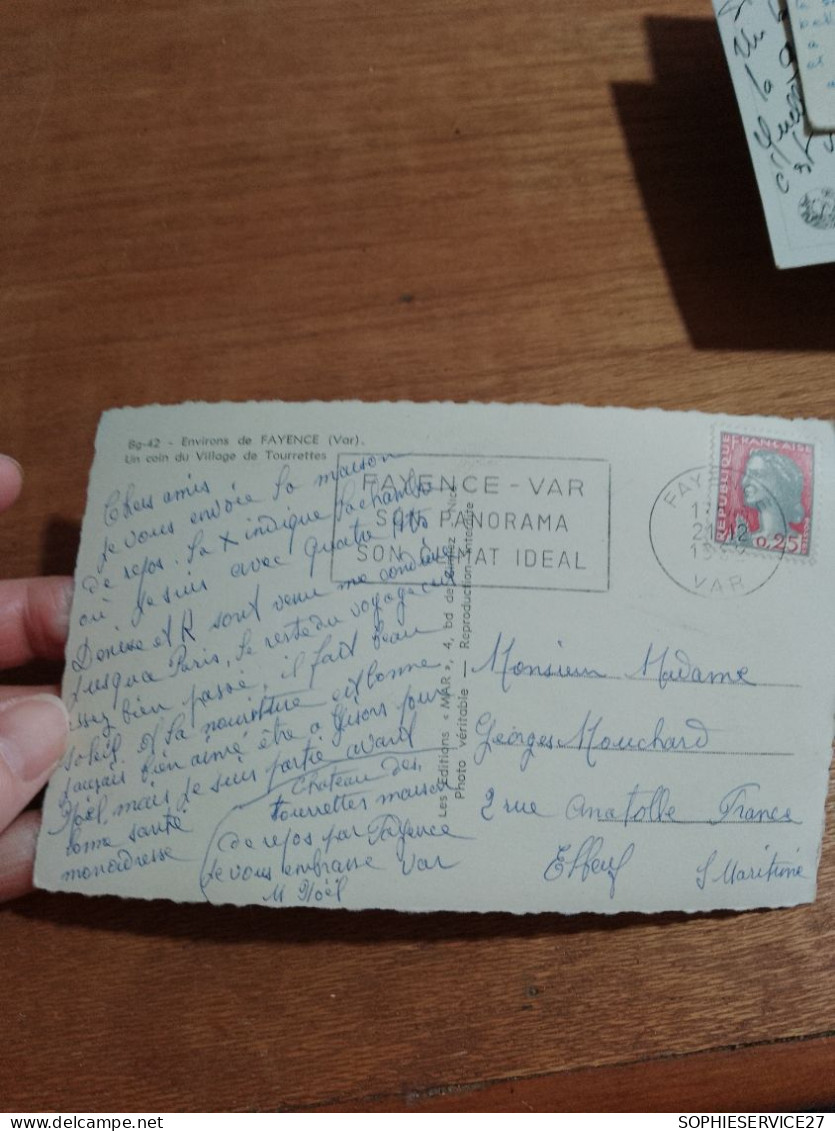 Bg-42 - Environs de FAYENCE (Var).
Un coin du Village de Tourrettes
Chers amis
Je vous envoie la maison
de repos. La X indique la chambre
où je suis avec quatre lits
Denise et R sont venu me conduire
jusqua Paris, le reste du voyage
assez bien passé, il fait beau
soleil et la nourriture est bonne
jaurais bien aimé être a Gisors pour
Noël, mais je suis partie avant
bonne santé
mon adresse
Chateau des
tourrettes maison
de repos par Fayence
Je vous embrasse Var
M Noël
FAYENCE - VAR
SON PANORAMA
SON CLIMAT IDEAL
Les Editions « MAR », 4, bd de
Photo véritable — Reproduction interdite
RÉPUBLIQUE FRANÇAISE
0,25
VAR
Monsieur Madame
Georges Mouchard
2 rue Anatolle France
Elbeuf S Maritime
SOPHIESERVICE27